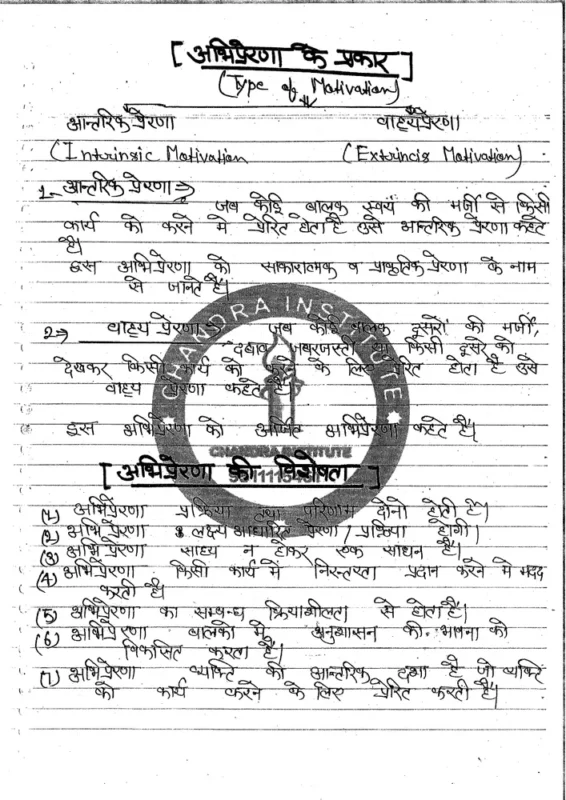 [ अभिप्रेरणा के प्रकार ]
(Type of Motivation)
आन्तरिक प्रेरणा वाह्यप्रेरणा
(Intrinsic Motivation (Extrincis Motivation)
1- आन्तरिक प्रेरणा ⇒
जब कोई बालक स्वयं की मर्जी से किसी
कार्य को करने मे प्रेरित होता है उसे आन्तरिक प्रेरणा कहते
है।
इस अभिप्रेरणा को साकारात्मक व प्राकृतिक प्रेरणा के नाम
से जानते है।
2⇒ वाह्य प्रेरणा ⇒ जब कोई बालक दूसरों की मर्जी,
दबाव जबरजस्ती या किसी दूसरे को
देखकर किसी कार्य को करने के लिए प्रेरित होता है उसे
वाह्य प्रेरणा कहते है।
इस अभिप्रेरणा को अर्जित अभिप्रेरणा कहते हैं।
CHANDRA INSTITUTE
CHANDRA INSTITUTE
[ अभिप्रेरणा की विशेषता ]
(1) अभिप्रेरणा प्रक्रिया तथा परिणाम दोनो होती है।
(2) अभिप्रेरणा लक्ष्य आधारित प्रेरणा / प्रक्रिया होगी।
(3) अभिप्रेरणा साध्य न होकर एक साधन है।
(4) अभिप्रेरणा किसी कार्य में निरन्तरता प्रदान करने मे मदद
करती है।
(5) अभिप्रेरणा का सम्बन्ध क्रियाशीलता से होता है।
(6) अभिप्रेरणा बालको मे अनुशासन की भावना को
विकसित करता है।
(7) अभिप्रेरणा व्यक्ति की आन्तरिक दशा है जो व्यक्ति
को कार्य करने के लिए प्रेरित करती है।